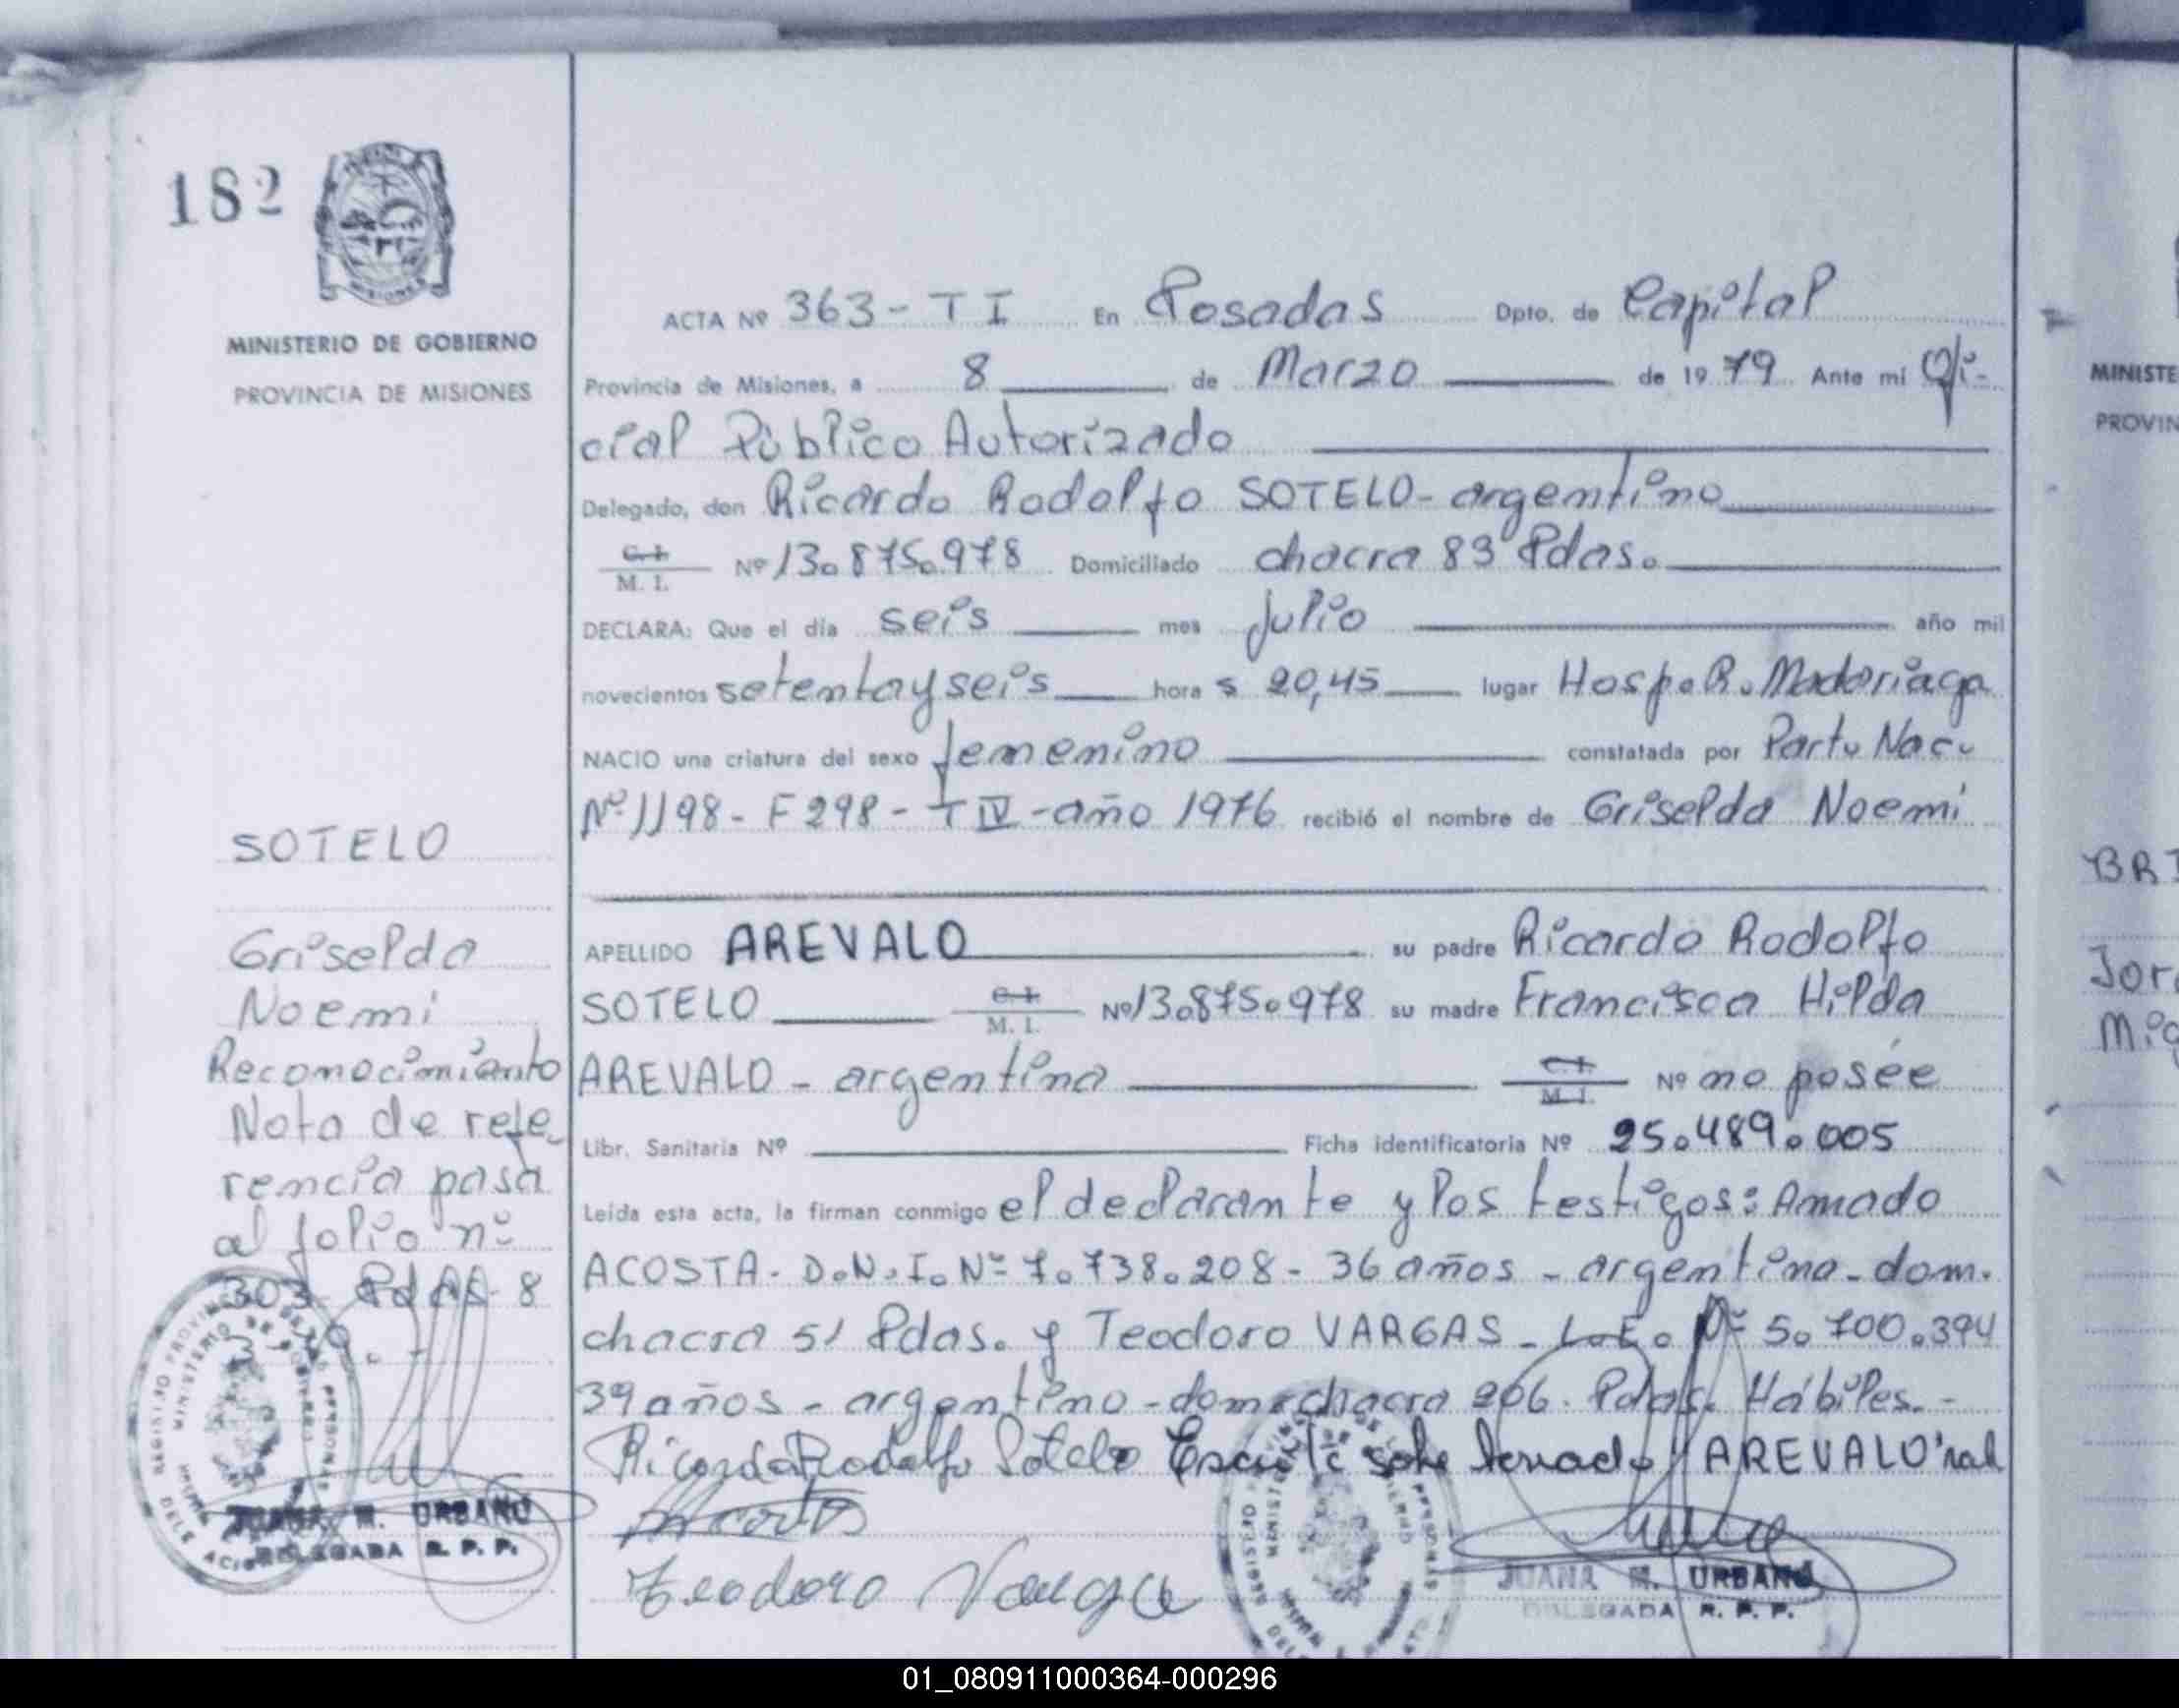 182
MINISTERIO DE GOBIERNO
PROVINCIA DE MISIONES
ACTA Nº 363 - T I En Posadas Dpto. de Capital
Provincia de Misiones, a 8 de Marzo de 1979 Ante mi Ofi-
cial Público Autorizado
Delegado, don Ricardo Rodolfo SOTELO - argentino
C. I. M. I. Nº 13.875.978 Domiciliado chacra 83 Pdas.
DECLARA: Que el día seis mes Julio año mil
novecientos setenta y seis hora s 20,45 lugar Hosp. R. Madariaga
NACIO una criatura del sexo femenino constatada por Part. Nac.
Nº 1198 - F 298 - T IV - año 1976 recibió el nombre de Griselda Noemi
APELLIDO AREVALO su padre Ricardo Rodolfo
SOTELO C. I. M. I. Nº 13.875.978 su madre Francisca Hilda
AREVALO - argentina C. I. M. I. Nº no posée
Libr. Sanitaria Nº Ficha identificatoria Nº 25.489.005
Leída esta acta, la firman conmigo el declarante y los testigos: Amado
ACOSTA - D.N.I. Nº 7.738.208 - 36 años - argentino - dom.
chacra 51 Pdas. y Teodoro VARGAS - L.E. Nº 5.700.394
39 años - argentino - dom. chacra 206. Pdas. Hábiles. -
Ricardo Rodolfo Sotelo Escrito sobre AREVALO
Teodoro Vargas
JUANA M. URBANO
DELEGADA R. P. P.
SOTELO
Griselda
Noemi
Reconocimiento
Nota de refe
rencia pasa
al folio nº
303 Pdas 8
JUANA M. URBANO
DELEGADA R. P. P.
MINISTE
PROVIN
BRI
Jor
Mig
01_080911000364-000296